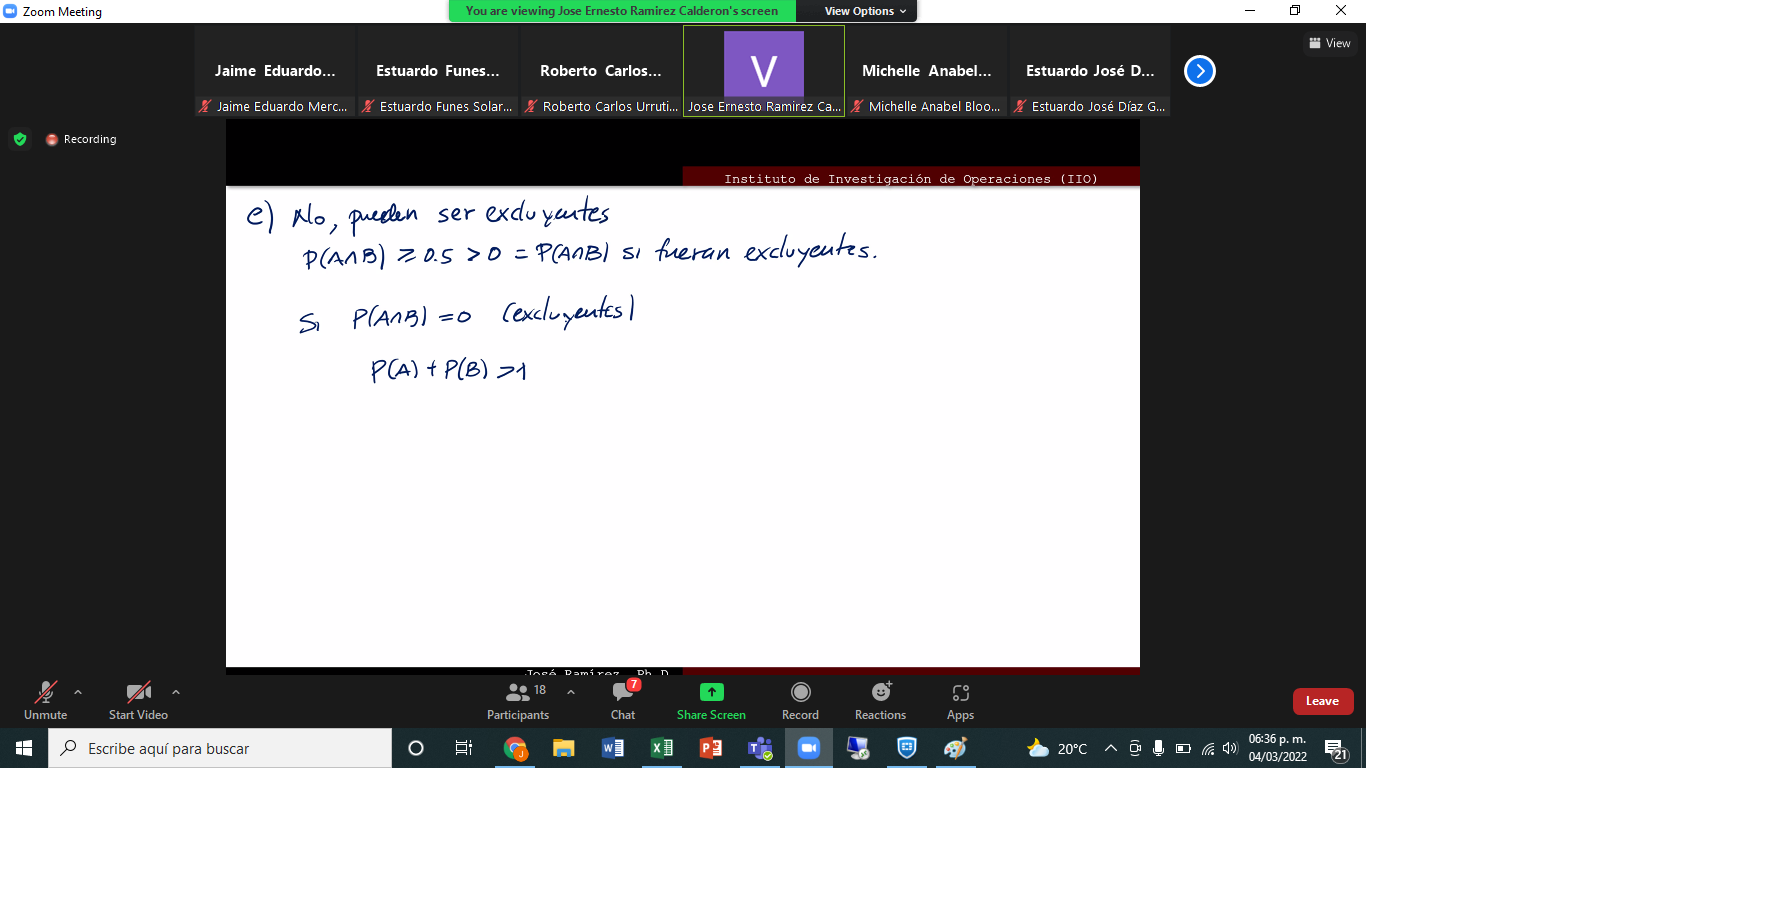 Zoom Meeting
You are viewing Jose Ernesto Ramirez Calderon's screen
View Options
View
Jaime Eduardo...
Estuardo Funes...
Roberto Carlos...
V
Michelle Anabel...
Estuardo José D...
Jaime Eduardo Merc...
Estuardo Funes Solar...
Roberto Carlos Urruti...
Jose Ernesto Ramirez Ca...
Michelle Anabel Bloo...
Estuardo José Díaz G...
Recording
Instituto de Investigación de Operaciones (IIO)
e) No, pueden ser excluyentes
P(A∩B) ≥ 0.5 > 0 = P(A∩B) si fueran excluyentes.
Si P(A∩B) = 0 (excluyentes)
P(A) + P(B) > 1
José Ramírez, Ph.D
Unmute
Start Video
18
Participants
7
Chat
Share Screen
Record
Reactions
Apps
Leave
Escribe aquí para buscar
20°C
06:36 p. m.
04/03/2022
21